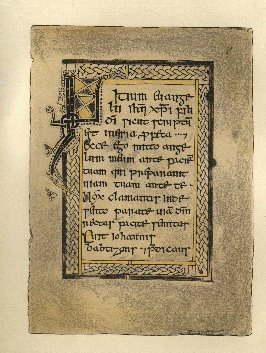 Itium Euange
lii ihu xpi filii
di sicut scriptum
est in isaia propheta
Ecce ego mitto ange
lum meum ante faciem
tuam qui preparauit
uiam tuam ante te
Uox clamantis in de
serto parate uiam dni
rectas facite semitas
fuit iohannis
babtizans et predicans